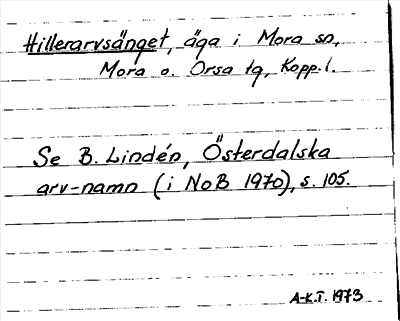 Hillerarvsänget, äga i Mora sn,
Mora o. Orsa tg, Kopp. l.
Se B. Lindén, Österdalska
arv-namn (i NoB 1970), s. 105.
A-K.T. 1973